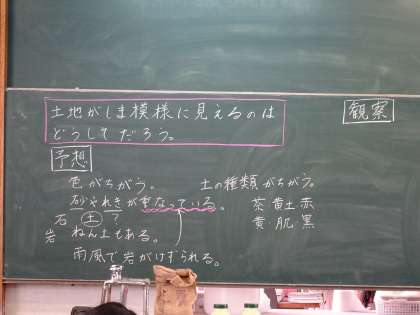 土地がしま模様に見えるのは
どうしてだろう。
観察
予想
色がちがう。
土の種類がちがう。
砂やれきが重なっている。
茶 黄土 赤
石 土 ?
黄 肌 黒
岩 ねん土もある。
雨風で岩がけずられる。